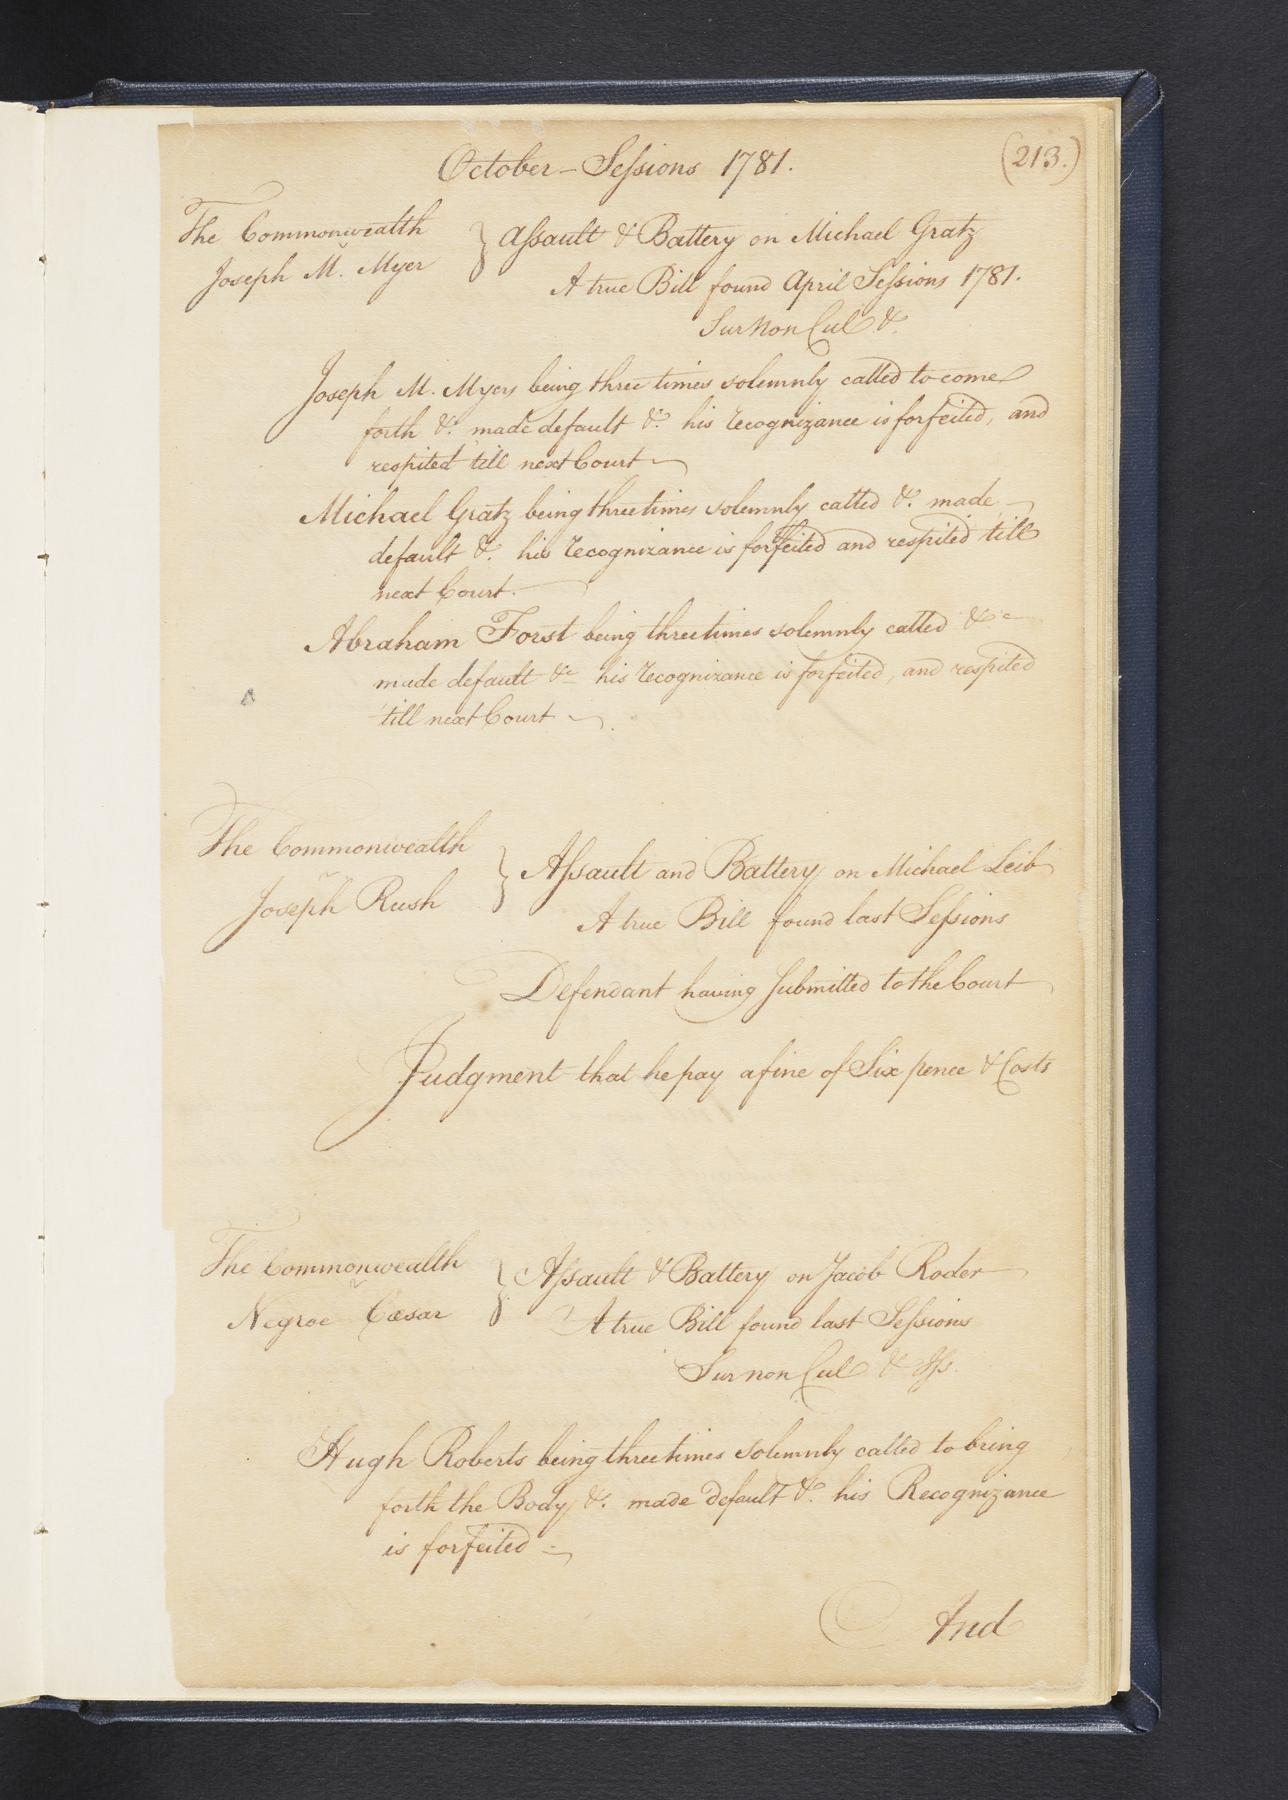 October - Sessions 1781.
(213.)
The Commonwealth
v
Joseph M. Myer
} Assault & Battery on Michael Gratz
A true Bill found April Sessions 1781.
Sur Non Cul &
Joseph M. Myers being three times solemnly called to come
forth &c. made default &c. his recognizance is forfeited, and
respited till next Court
Michael Gratz being three times solemnly called &c. made
default &c. his recognizance is forfeited and respited till
next Court.
Abraham Forst being three times solemnly called &c
made default &c his recognizance is forfeited, and respited
till next Court
The Commonwealth
v
Joseph Rush
} Assault and Battery on Michael Leib
A true Bill found last Sessions
Defendant having submitted to the Court
Judgment that he pay a fine of Six pence & Costs
The Commonwealth
v
Negroe Cæsar
} Assault & Battery on Jacob Roder
A true Bill found last Sessions
Sur non Cul &
Hugh Roberts being three times solemnly called to bring
forth the Body &c. made default &c. his Recognizance
is forfeited
And